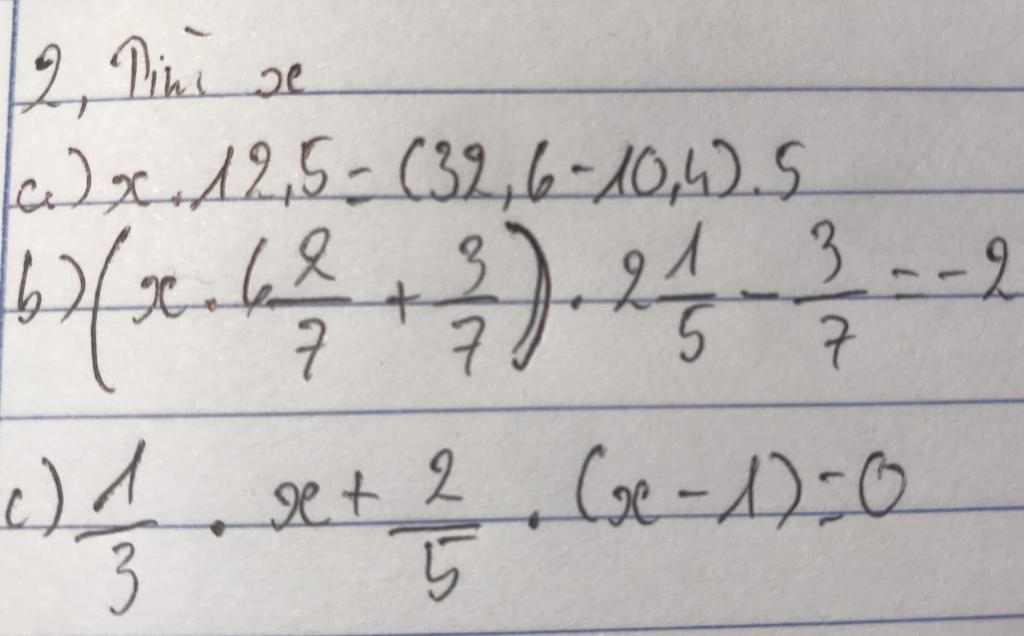 2, Tìm x
a) x . 12,5 = (32,6 - 10,4) . 5
b) (x . 6 2/7 + 3/7) . 2 1/5 - 3/7 = -2
c) 1/3 . x + 2/5 . (x - 1) = 0